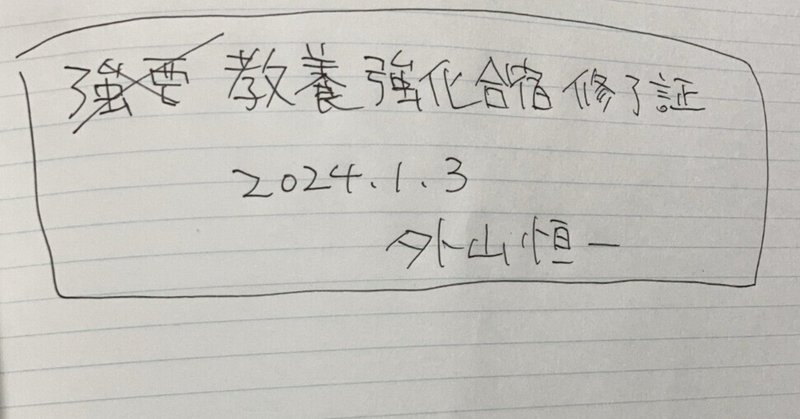 強要 教養強化合宿 修了証
2024.1.3
外山恒一